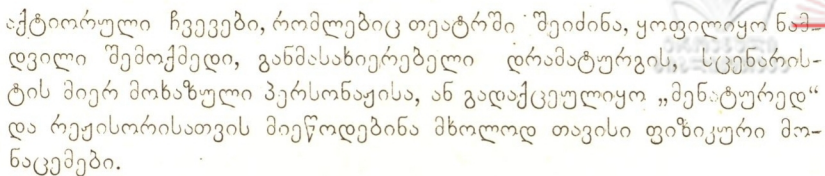 აქტიორული ჩვევები, რომლებიც თეატრში შეიძინა, ყოფილიყო ნამ-
დვილი შემოქმედი, განმასახიერებელი დრამატურგის, სცენარის-
ტის მიერ მოხაზული პერსონაჟისა, ან გადაქცეულიყო „მენატურედ“
და რეჟისორისათვის მიეწოდებინა მხოლოდ თავისი ფიზიკური მო-
ნაცემები.